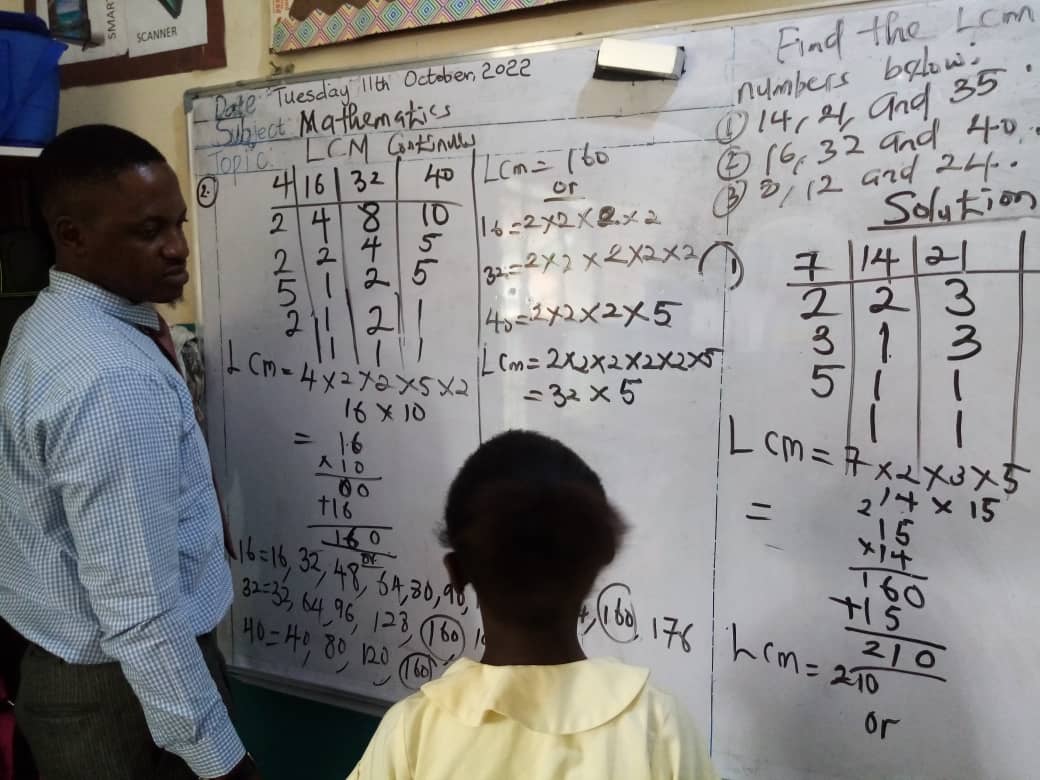 SMAR
SCANNER
Date: Tuesday 11th October, 2022
Subject: Mathematics
Topic: LCM Continues
2.
4 | 16 | 32 | 40
2 | 4 | 8 | 10
2 | 2 | 4 | 5
5 | 1 | 2 | 5
2 | 1 | 2 | 1
1 | 1 | 1
LCM = 4 × 2 × 2 × 5 × 2
16 × 10
= 16
× 10
00
+ 16
160
or
16 = 16, 32, 48, 64, 80, 96, 160, 176
32 = 32, 64, 96, 128, 160
40 = 40, 80, 120, 160
LCM = 160
or
16 = 2 × 2 × 2 × 2
32 = 2 × 2 × 2 × 2 × 2
40 = 2 × 2 × 2 × 5
LCM = 2 × 2 × 2 × 2 × 2 × 5
= 32 × 5
Find the LCM
numbers below:
① 14, 21, and 35.
② 16, 32 and 40.
③ 8, 12 and 24.
Solution
1
7 | 14 | 21 |
2 | 2 | 3
3 | 1 | 3
5 | 1 | 1
1 | 1
LCM = 7 × 2 × 3 × 5
= 14 × 15
15
× 14
60
+ 15
210
LCM = 210
or